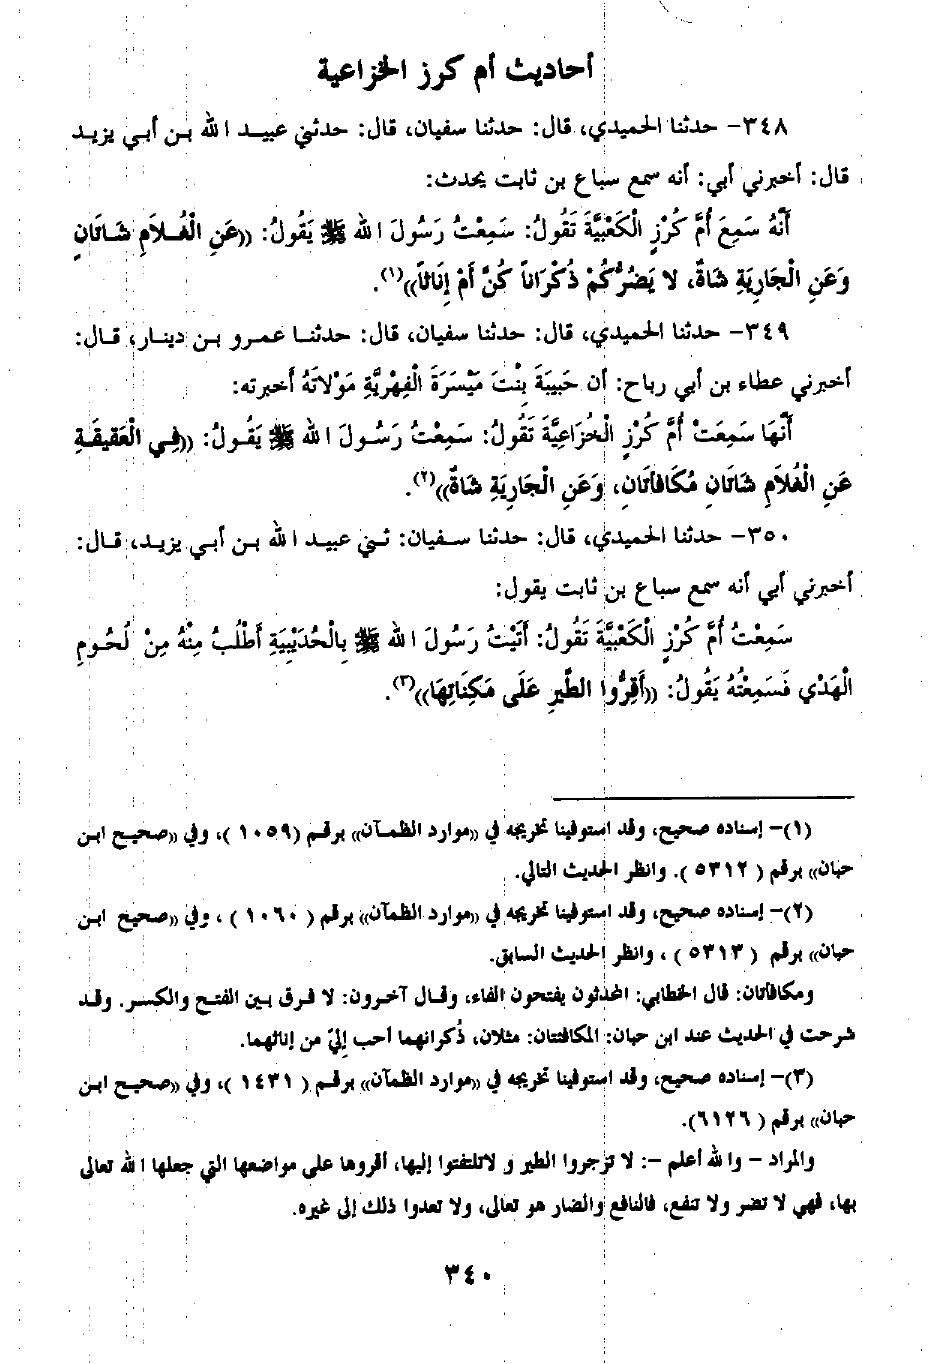 أحاديث أم كرز الخزاعية
٣٤٨- حدثنا الحميدي، قال: حدثنا سفيان، قال: حدثني عبيد الله بن أبي يزيد
قال: أخبرني أبي: أنه سمع سباع بن ثابت يحدث:
أَنَّهُ سَمِعَ أُمَّ كُرْزٍ الْكَعْبِيَّةَ تَقُولُ: سَمِعْتُ رَسُولَ الله ﷺ يَقُولُ: ((عَنِ الْغُلاَمِ شَاتَانِ
وَعَنِ الْجَارِيَةِ شَاةٌ، لا يَضُرُّكُمْ ذُكْرَاناً كُنَّ أَمْ إِنَاثاً))(١).
٣٤٩- حدثنا الحميدي، قال: حدثنا سفيان، قال: حدثنا عمرو بن دينار، قال:
أخبرني عطاء بن أبي رباح: أن حَبِيبَةَ بِنْتَ مَيْسَرَةَ الْفِهْرِيَّةِ مَوْلاَتَهُ أخبرته:
أَنَّهَا سَمِعَتْ أُمَّ كُرْزٍ الْخُزَاعِيَّةَ تَقُولُ: سَمِعْتُ رَسُولَ الله ﷺ يَقُولُ: ((فِي الْعَقِيقَةِ
عَنِ الْغُلاَمِ شَاتَانِ مُكَافَأَتَانِ، وَعَنِ الْجَارِيَةِ شَاةٌ))(٢).
٣٥٠- حدثنا الحميدي، قال: حدثنا سفيان: ثني عبيد الله بن أبي يزيد، قال:
أخبرني أبي أنه سمع سباع بن ثابت يقول:
سَمِعْتُ أُمَّ كُرْزٍ الْكَعْبِيَّةَ تَقُولُ: أَتَيْتُ رَسُولَ الله ﷺ بِالْحُدَيْبِيَةِ أَطْلُبُ مِنْهُ مِنْ لُحُومِ
الْهَدْي فَسَمِعْتُهُ يَقُولُ: ((أَقِرُّوا الطَّيرِ عَلَى مَكِنَاتِهَا))(٣).
(١)- إسناده صحيح، وقد استوفينا تخريجه في ((موارد الظمآن)) برقم (١٠٥٩)، وفي ((صحيح ابن
حبان)) برقم (٥٣١٢). وانظر الحديث التالي.
(٢)- إسناده صحيح، وقد استوفينا تخريجه في ((موارد الظمآن)) برقم (١٠٦٠)، وفي ((صحيح ابن
حبان)) برقم (٥٣١٣)، وانظر الحديث السابق.
ومكافأتان: قال الخطابي: المحدثون يفتحون الفاء، وقال آخرون: لا فرق بين الفتح والكسر. وقد
شرحت في الحديث عند ابن حبان: المكافئتان: مثلان، ذُكرانهما أحب إليّ من إناثهما.
(٣)- إسناده صحيح، وقد استوفينا تخريجه في ((موارد الظمآن)) برقم (١٤٣١)، وفي ((صحيح ابن
حبان)) برقم (٦١٢٦).
والمراد - والله أعلم -: لا تزجروا الطير و لاتلتفتوا إليها، أقروها على مواضعها التي جعلها الله تعالى
بها، فهي لا تضر ولا تنفع، فالنافع والضار هو تعالى، ولا تعدوا ذلك إلى غيره.
٣٤٠